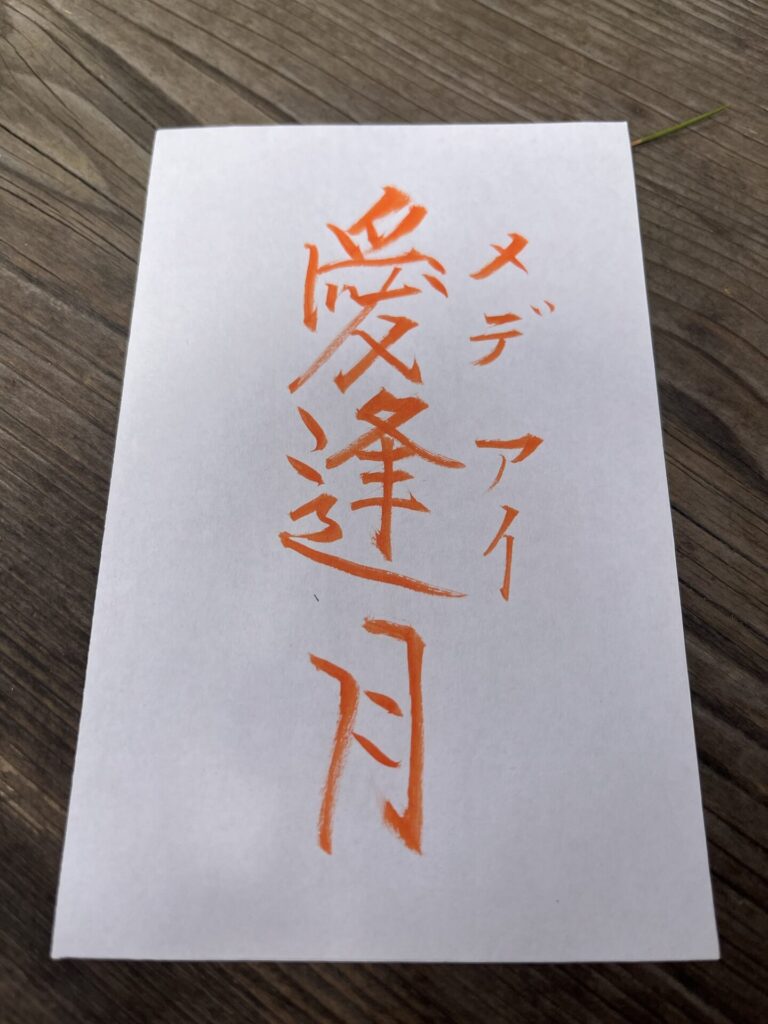 メデ アイ
愛逢月